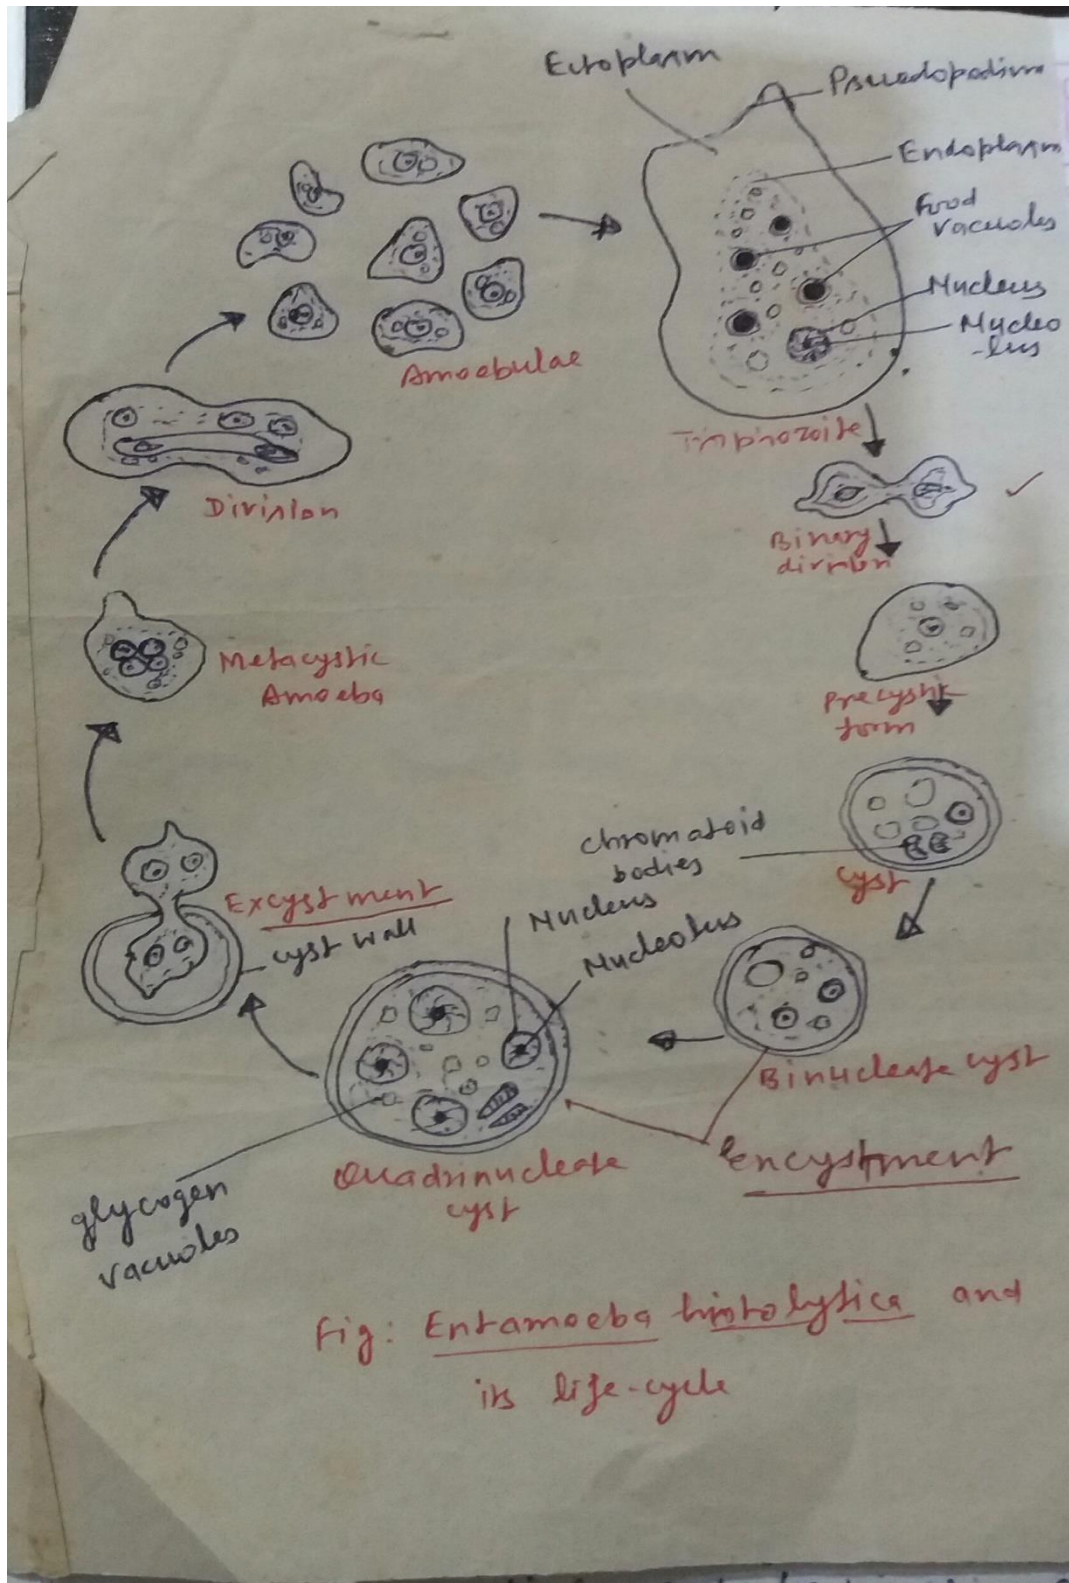 Ectoplasm
Pseudopodium
Endoplasm
Food
vacuoles
Nucleus
Nucleo
-lus
Amoebulae
Trophozoite
Division
Binary
division
Metacystic
Amoeba
Precystic
form
chromatoid
bodies
cyst
Excystment
cyst wall
Nucleus
Nucleolus
Binucleate cyst
encystment
Quadrinucleate
cyst
glycogen
vacuoles
Fig: Entamoeba histolytica and
its life-cycle